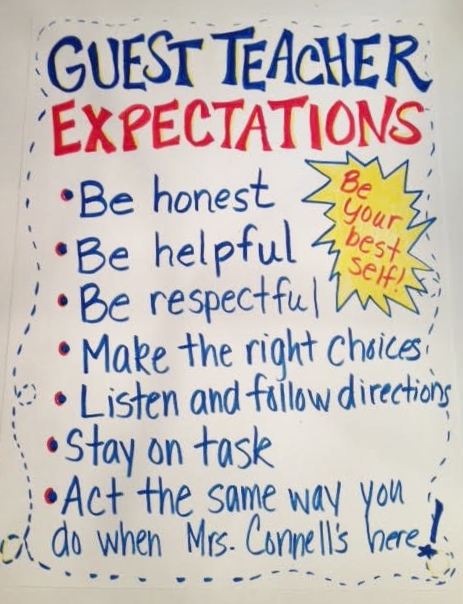 GUEST TEACHER
EXPECTATIONS
• Be honest
• Be helpful
• Be respectful
Be
your
best
self!
• Make the right choices
• Listen and follow directions
• Stay on task
• Act the same way you
do when Mrs. Connell's here!